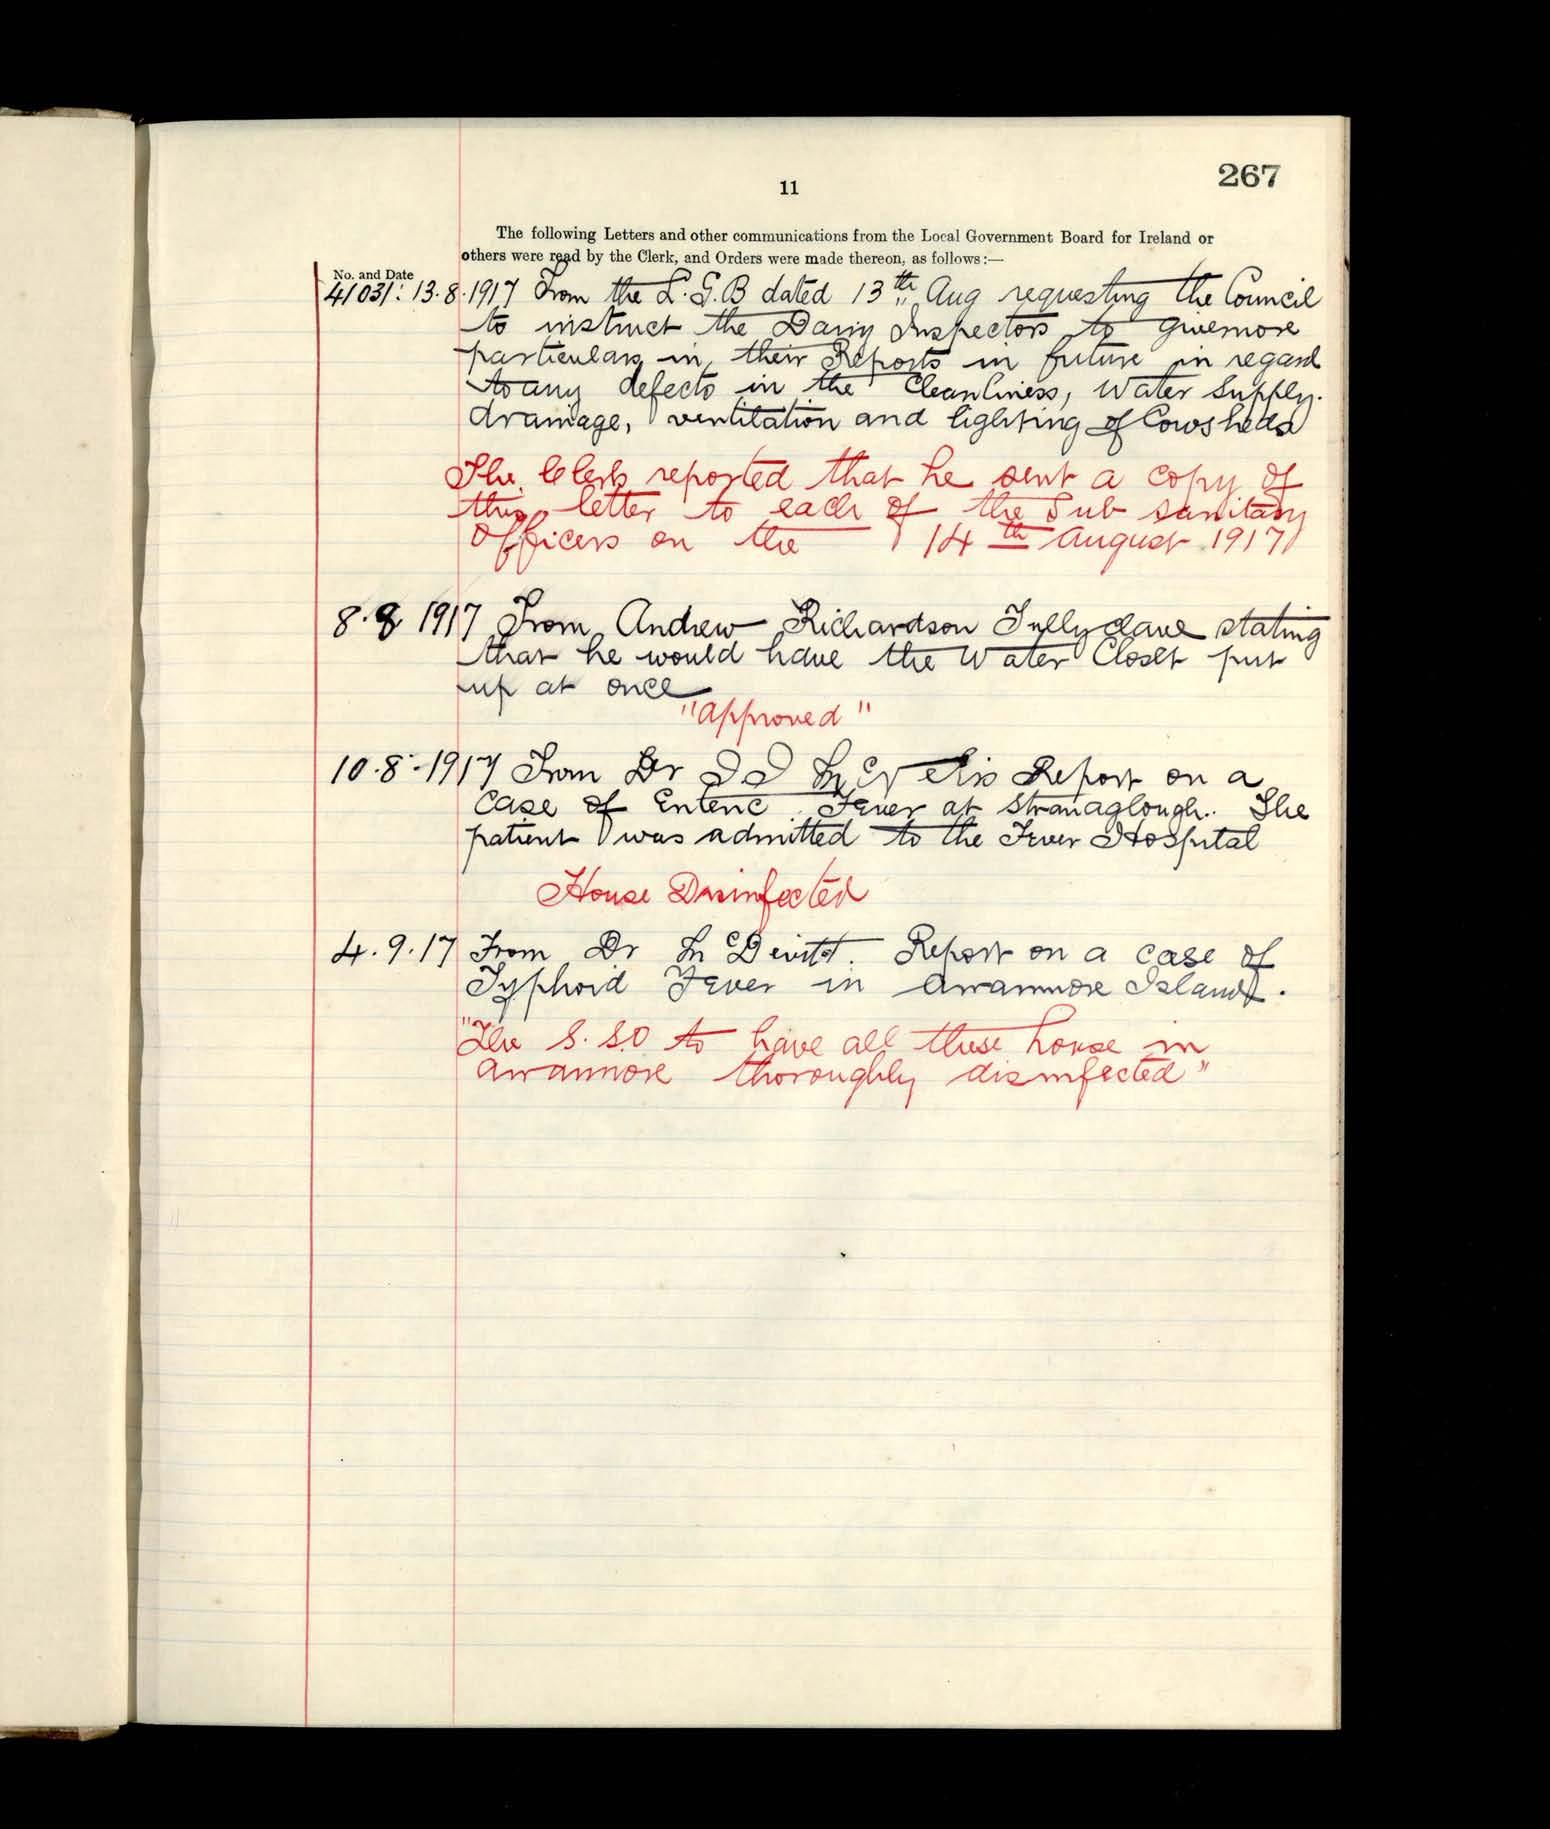 267
11
The following Letters and other communications from the Local Government Board for Ireland or
others were read by the Clerk, and Orders were made thereon, as follows:—
No. and Date
41031: 13.8.1917 From the L.G.B dated 13th Aug requesting the Council
to instruct the Dairy Inspectors to give more
particulars in their Reports in future in regard
to any defects in the Cleanliness, Water Supply.
drainage, ventilation and lighting of Cowsheds
The Clerk reported that he sent a copy of
this letter to each of the Sub sanitary
Officers on the 14th August 1917
8.8.1917 From Andrew Richardson stating
that he would have the Water Closet put
up at once
"approved"
10.8.1917 From Dr Report on a
case of Enteric Fever at Stranaglough. The
patient was admitted to the Fever Hospital
House Disinfected
4.9.17 From Dr McDevitt. Report on a case of
Typhoid Fever in Arranmore Island.
"The S.S.O to have all these house in
Arranmore thoroughly disinfected"